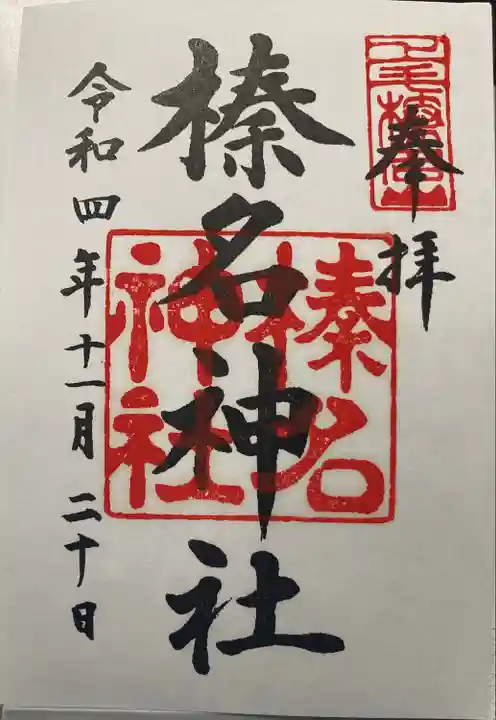 奉拝
榛名神社
榛名神社
令和四年十一月二十日